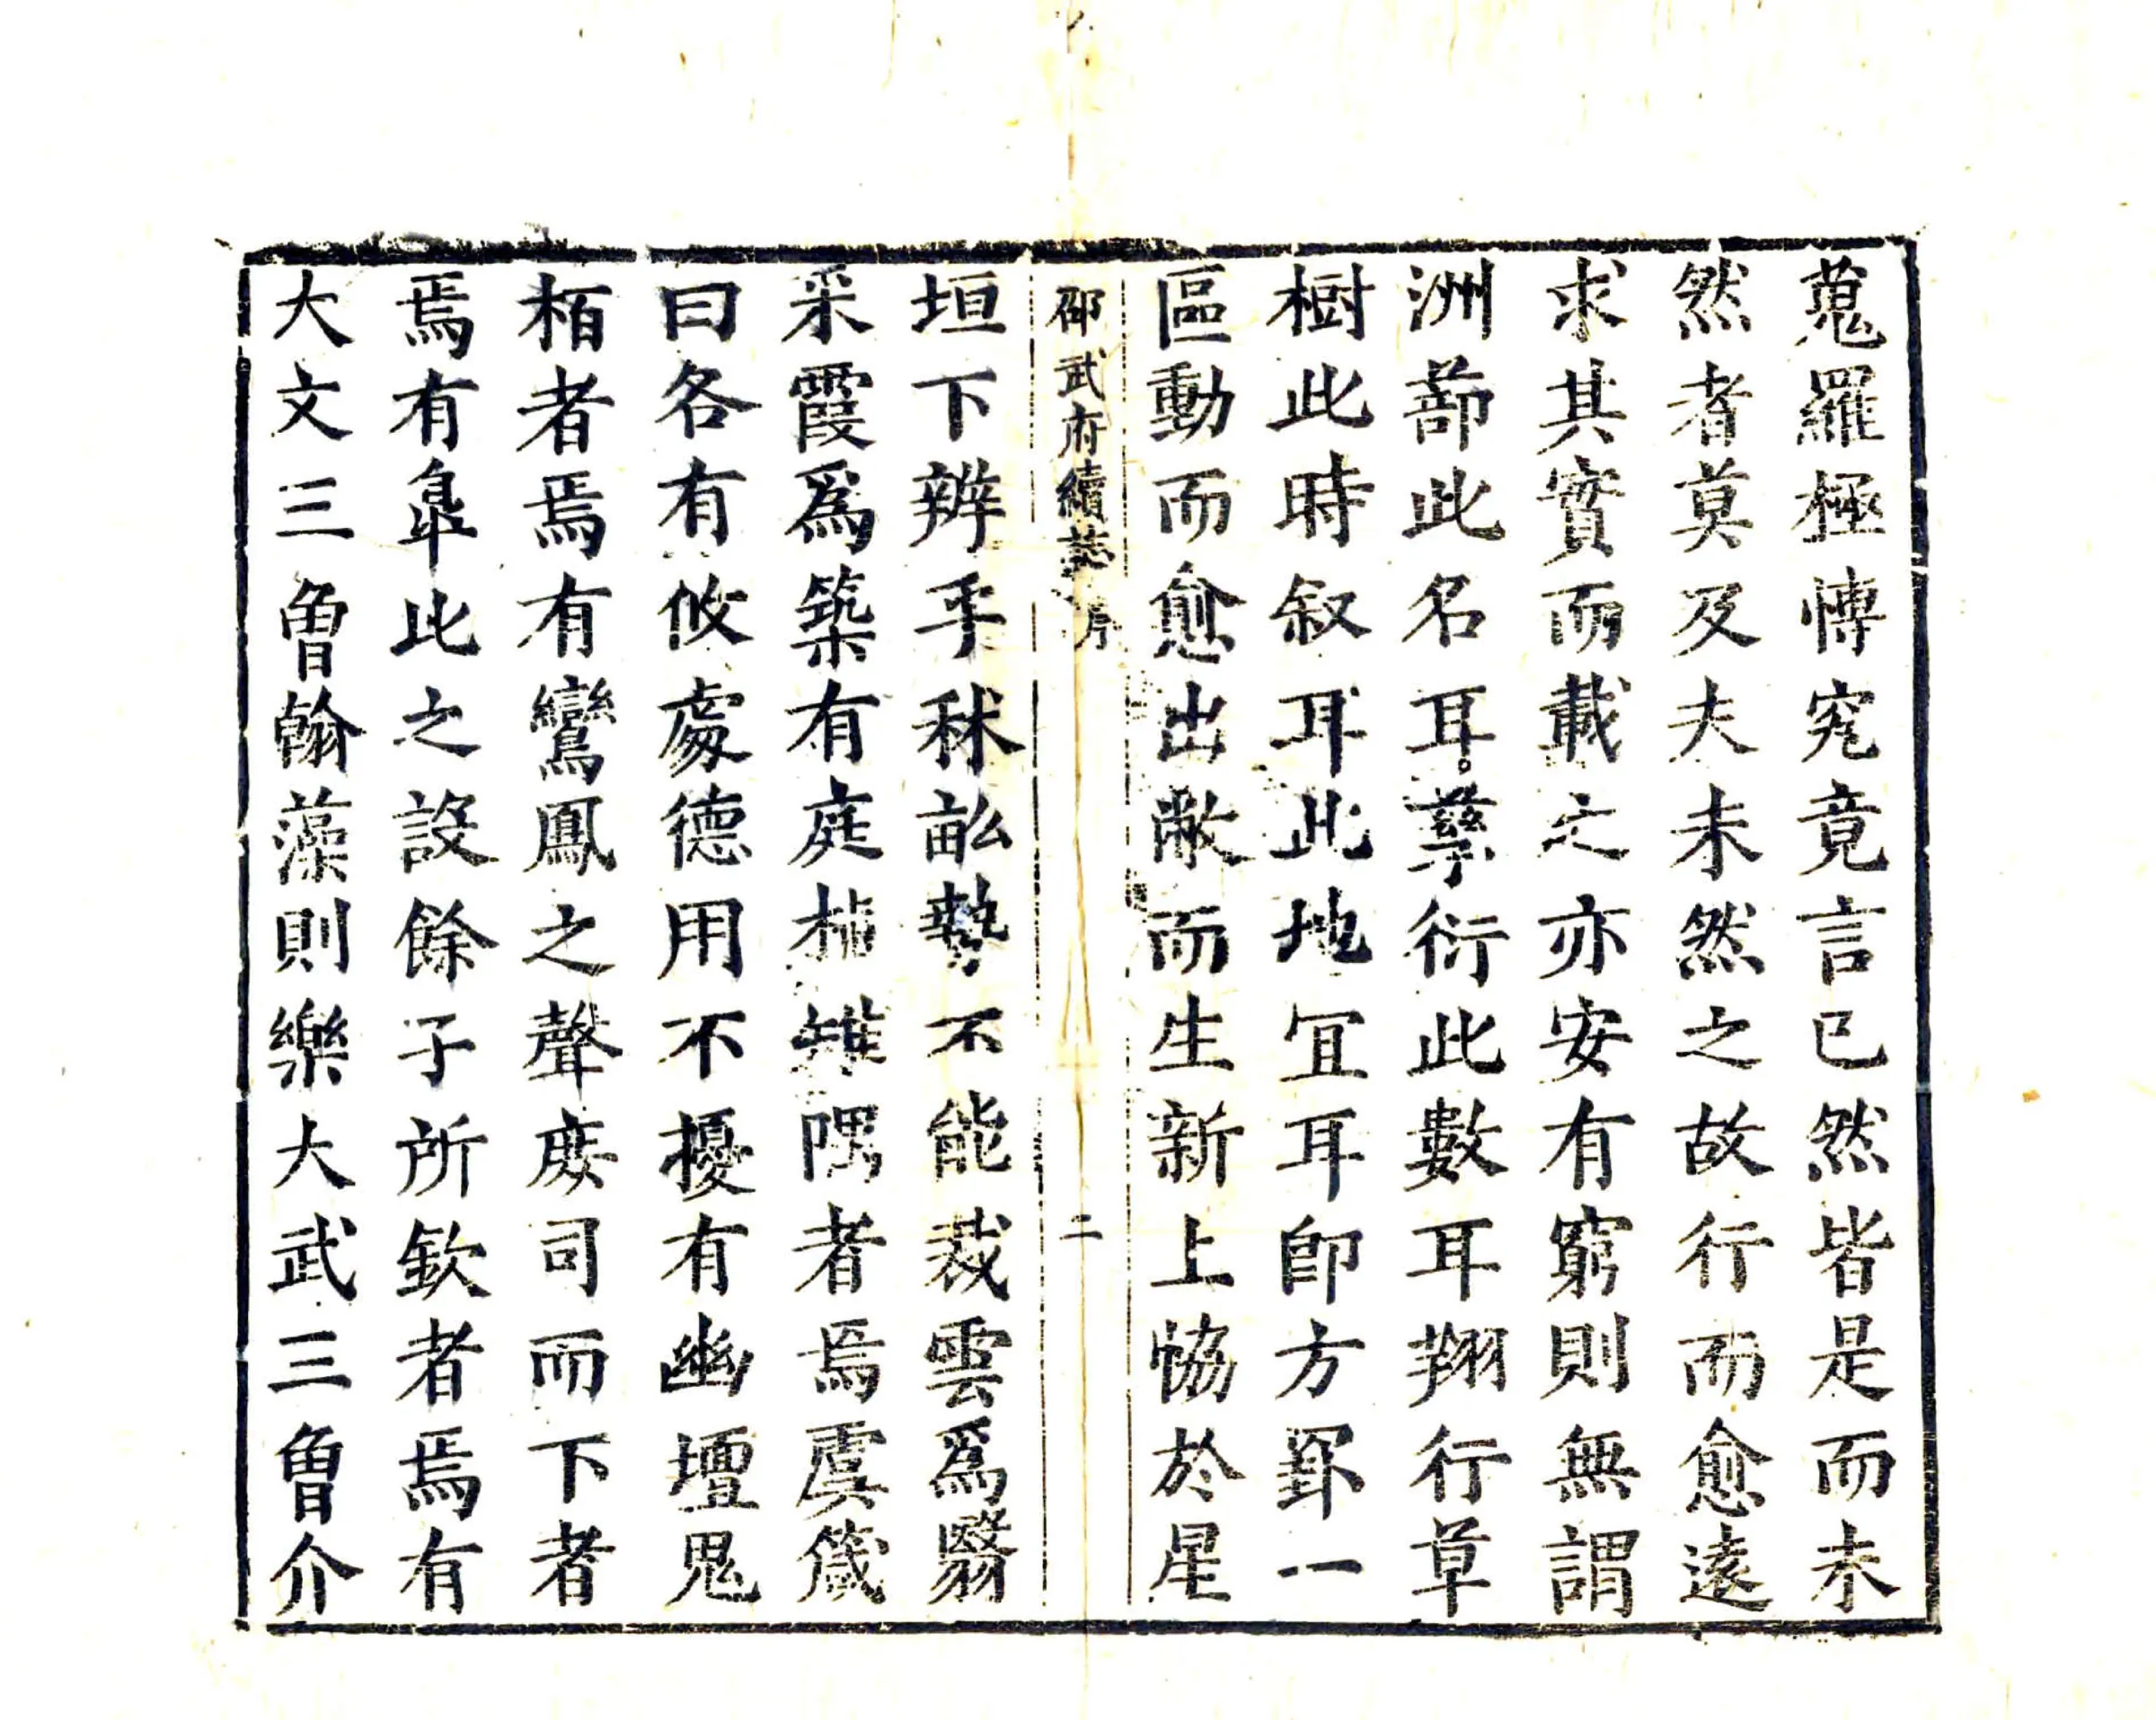 蒐羅極慱究竟言已然皆是而未
然者莫及夫未然之故行而愈遠
求其實而載之亦安有窮則無謂
洲蔀此名耳。孳衍此數耳翔行草
樹此時叙耳此地冝耳即方罫一
區動而愈出敝而生新上恊於星
邵武府續誌 序 二
垣下辨乎秝畝勢不能裁雲爲翳
采霞爲築有庭植雉隅者焉虞箴
曰各有攸處德用不擾有幽壇鬼
栢者焉有鸞鳳之聲庻司而下者
焉有辠此之設餘子所欽者焉有
大文三曾翰藻則樂大武三曾介